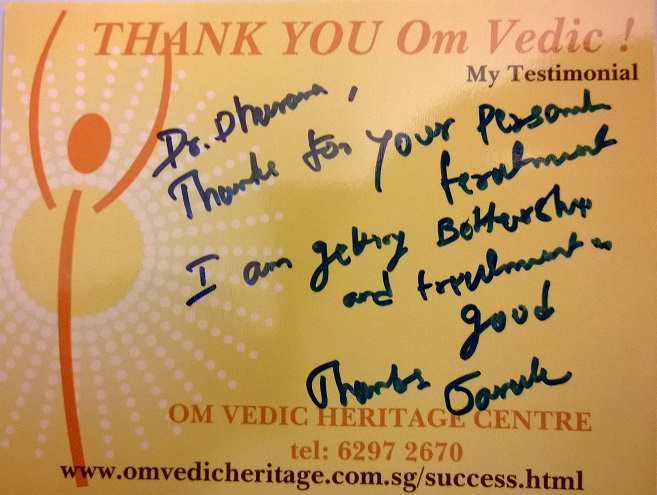 THANK YOU Om Vedic !
My Testimonial
Thanks for your Personal
I am getting
and treatment is
good
Thanks
OM VEDIC HERITAGE CENTRE
tel: 6297 2670
www.omvedicheritage.com.sg/success.html